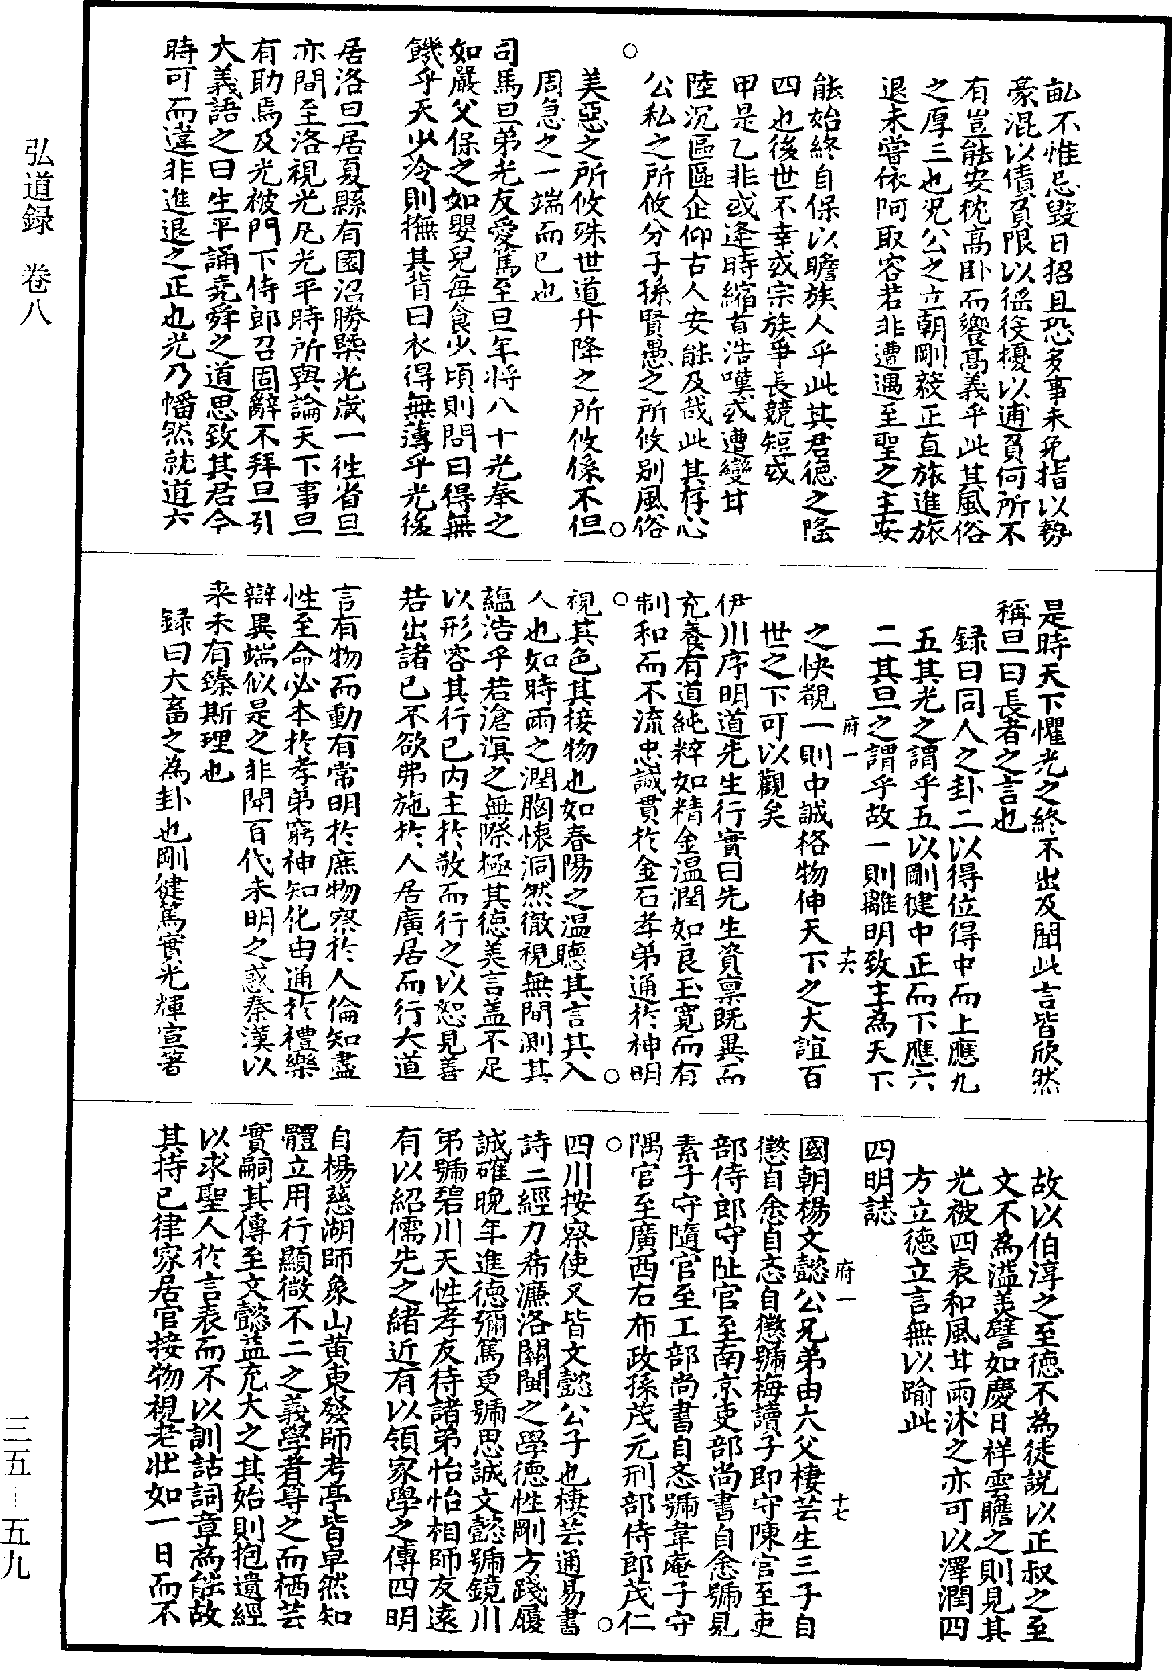 亂不惟忌毀日招且恐多事未免指以勢
豪混以債負限以徭役擾以逋負何所不
有豈能安枕高卧而饗高義乎此其風俗
之厚三也況公之立朝剛毅正直旅進旅
退未嘗依阿取容若非遭遇至聖之主安
能始終自保以贍族人乎此其君德之隆
四也後世不幸或宗族爭長競短或
甲是乙非或逢時縮首浩嘆或遭變甘
陸沉區區企仰古人安能及哉此其存心
公私之所攸分子孫賢愚之所攸别風俗
美惡之所攸殊世道升降之所攸係不但
周急之一端而已也
○司馬旦弟光友愛篤至旦年將八十光奉之
如嚴父保之如嬰兒每食少頃則問曰得無
饑乎天少冷則撫其背曰衣得無薄乎光後
居洛旦居夏縣有園沼勝槩光嵗一徃省旦
亦間至洛視光凡光平時所與論天下事旦
有助焉及光被門下侍郎召固辭不拜旦引
大義語之曰生平誦堯舜之道思致其君今
時可而違非進退之正也光乃幡然就道六
是時天下懼光之終不出及聞此言皆欣然
稱旦曰長者之言也
録曰同人之卦二以得位得中而上應九
五其光之謂乎五以剛健中正而下應六
二其旦之謂乎故一則離明致主為天下
之快覩一則中誠格物伸天下之大誼百
世之下可以觀矣
○伊川序明道先生行實曰先生資稟既異而
充養有道純粹如精金温潤如良玉寬而有
制和而不流忠誠貫於金石孝弟通於神明
視其色其接物也如春陽之温聽其言其入
人也如時雨之潤胸懷洞然徹視無間測其
藴浩乎若滄溟之無際極其德美言盖不足
以形容其行已内主於敬而行之以恕見善
若出諸已不欲弗施於人居廣居而行大道
言有物而動有常明於庶物察於人倫知盡
性至命必本於孝弟窮神知化由通於禮樂
辯異端似是之非開百代未明之惑秦漢以
来未有臻斯理也
録曰大畜之為卦也剛健篤實光輝宣著
故以伯淳之至德不為徒説以正叔之至
文不為溢美譬如慶日祥雲瞻之則見其
光被四表和風甘雨沐之亦可以澤潤四
方立德立言無以踰此
四明誌
○國朝楊文懿公兄弟由六父棲芸生三子自
懲自念自忞自懲號梅讀子即守陳官至吏
部侍郎守阯官至南京吏部尚書自念號見
素子守隨官至工部尚書自忞號韋庵子守
隅官至廣西右布政孫茂元刑部侍郎茂仁
四川按察使又皆文懿公子也棲芸通易書
詩二經力希濂洛關閩之學德性剛方踐履
誠確晚年進德彌篤更號思誠文懿號鏡川
弟號碧川天性孝友待諸弟怡怡相師友遠
有以紹儒先之緒近有以領家學之傳四明
自楊慈湖師象山黄東發師考亭皆卓然知
體立用行顯微不二之義學者尊之而栖芸
實嗣其傳至文懿益充大之其始則抱遺經
以求聖人於言表而不以訓詁詞章為能故
其持已律家居官接物視老壯如一日而不
府一
十六
府一
十七
弘道録 卷八
三五—五九